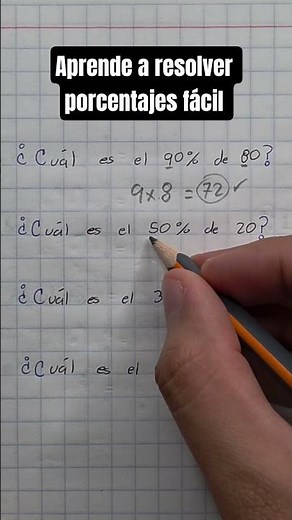 Aprende a resolver
porcentajes fácil
¿Cuál es el 90% de 80?
9 x 8 = 72 ✓
¿Cuál es el 50% de 20?
¿Cuál es el 3
¿Cuál es el